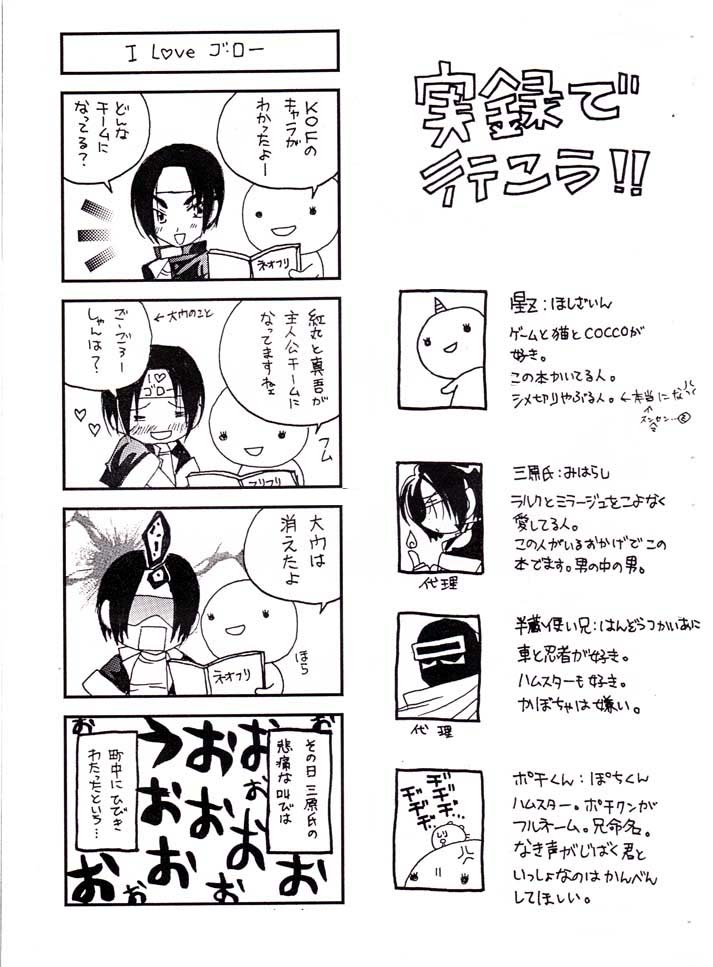 I L♡ve ゴロー
KOFの
キャラが
わかったよー
どんな
チームに
なってる？
ネオフリ
紅丸と真吾が
主人公チームに
なってますねェ
←大ウのこと
ご・ごろー
しゃんは？
I♡
ゴロー
フム
フリフリ
大ウは
消えたよ
ネオフリ
ほら
その日 三原氏の
悲痛な叫びは
おおおおおおおおうおおおお
町中にひびき
わたったという…
実録で
行こう!!
ほしざいん
ゲームと猫とCOCCOが
好き。
この本かいてる人。
シメ切りやぶる人。←本当になっ
三原氏：みはらし
ラルクとミラージュをこよなく
愛してる人。
この人がいるおかげでこの
本でます。男の中の男。
代理
半蔵使い兄：はんぞうつかいあに
車と忍者が好き。
ハムスターも好き。
かぼちゃは嫌い。
代理
ヂヂ
ヂヂ
ヂヂ…
ポチくん：ぽちくん
ハムスター。ポチクンが
フルネーム。兄命名。
なき声がじばく君と
いっしょなのはかんべん
してほしい。